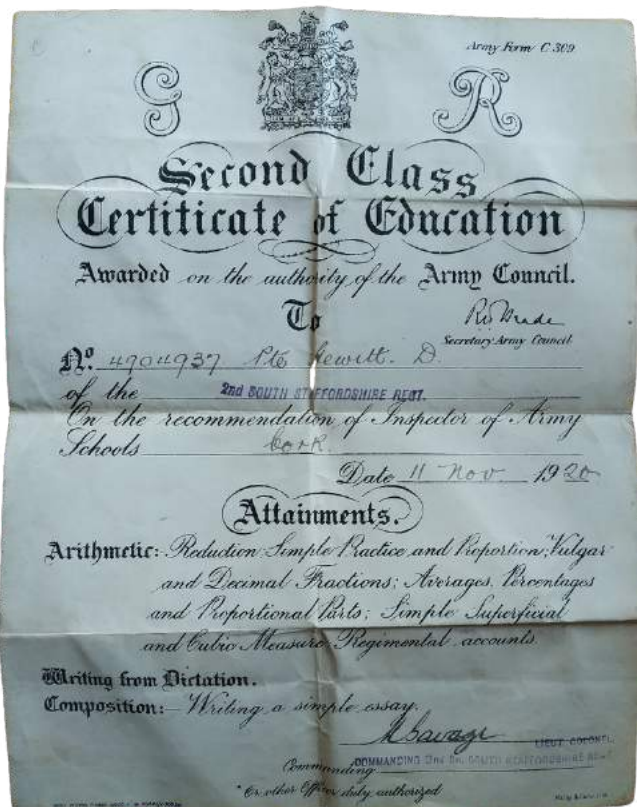 Army Form C 309
G R
Second Class
Certificate of Education
Awarded on the authority of the Army Council.
To
Secretary Army Council
No. 4904937 Pte Hewitt. D.
of the 2nd SOUTH STAFFORDSHIRE REGT.
On the recommendation of Inspector of Army
Schools Cork.
Date 11 Nov 1920
Attainments.
Arithmetic:- Reduction: Simple Practice and Proportion; Vulgar
and Decimal Fractions; Averages, Percentages
and Proportional Parts; Simple Superficial
and Cubic Measure: Regimental accounts.
Writing from Dictation.
Composition:- Writing a simple essay.
Savage
LIEUT COLONEL.
Commanding COMMANDING 2ND BN. SOUTH STAFFORDSHIRE REGT
* Or other Officer duly authorized